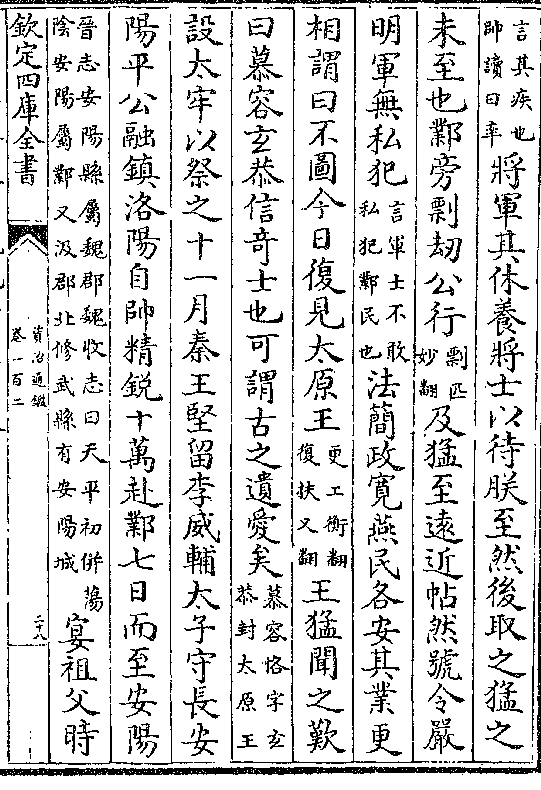 言其疾也
帥讀曰率
將軍其休養將士以待朕至然後取之猛之
未至也鄴旁剽劫公行
剽匹
妙翻
及猛至遠近帖然號令嚴
明軍無私犯
言軍士不敢
私犯鄴民也
法簡政寛燕民各安其業更
相謂曰不圖今日復見太原王
更工衡翻
復扶又翻
王猛聞之歎
曰慕容玄恭信竒士也可謂古之遺愛矣
慕容恪字玄
恭封太原王
設太牢以祭之十一月秦王堅留李威輔太子守長安
陽平公融鎮洛陽自帥精鋭十萬赴鄴七日而至安陽
晉志安陽縣屬魏郡魏收志曰天平初併蕩
陰安陽屬鄴又汲郡北修武縣有安陽城
宴祖父時
欽定四庫全書
資治通鑑
卷一百二
二十八